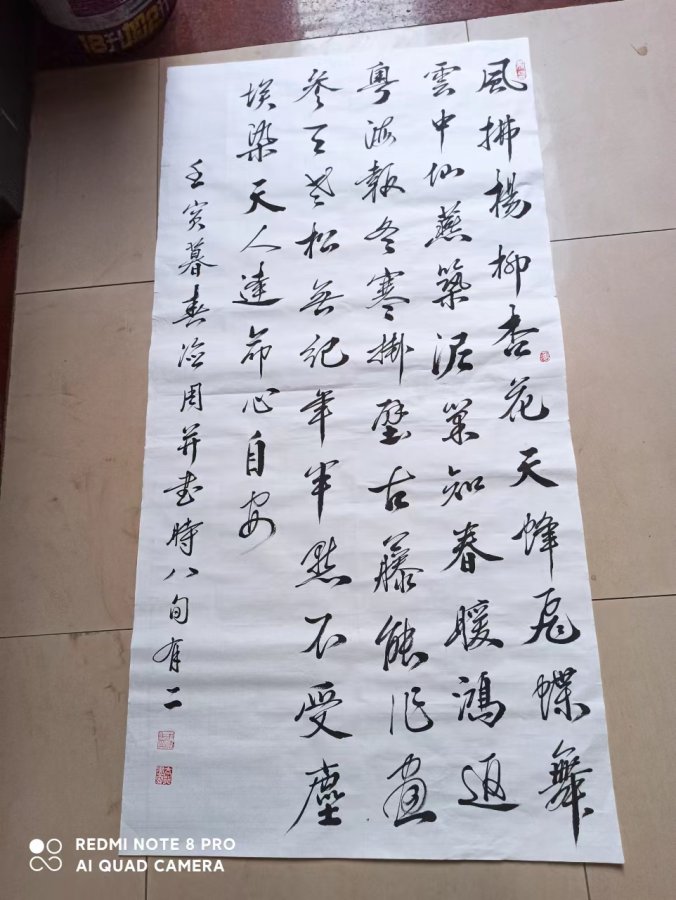 風拂楊柳杏花天蜂飛蝶舞
雲中仙燕築泥巢知春暖鴻返
粵海報冬寒掛壁古藤能作畫
參天老松無紀年半點不受塵
埃染天人達命心自安
壬寅暮春并書時八旬有二
REDMI NOTE 8 PRO
AI QUAD CAMERA